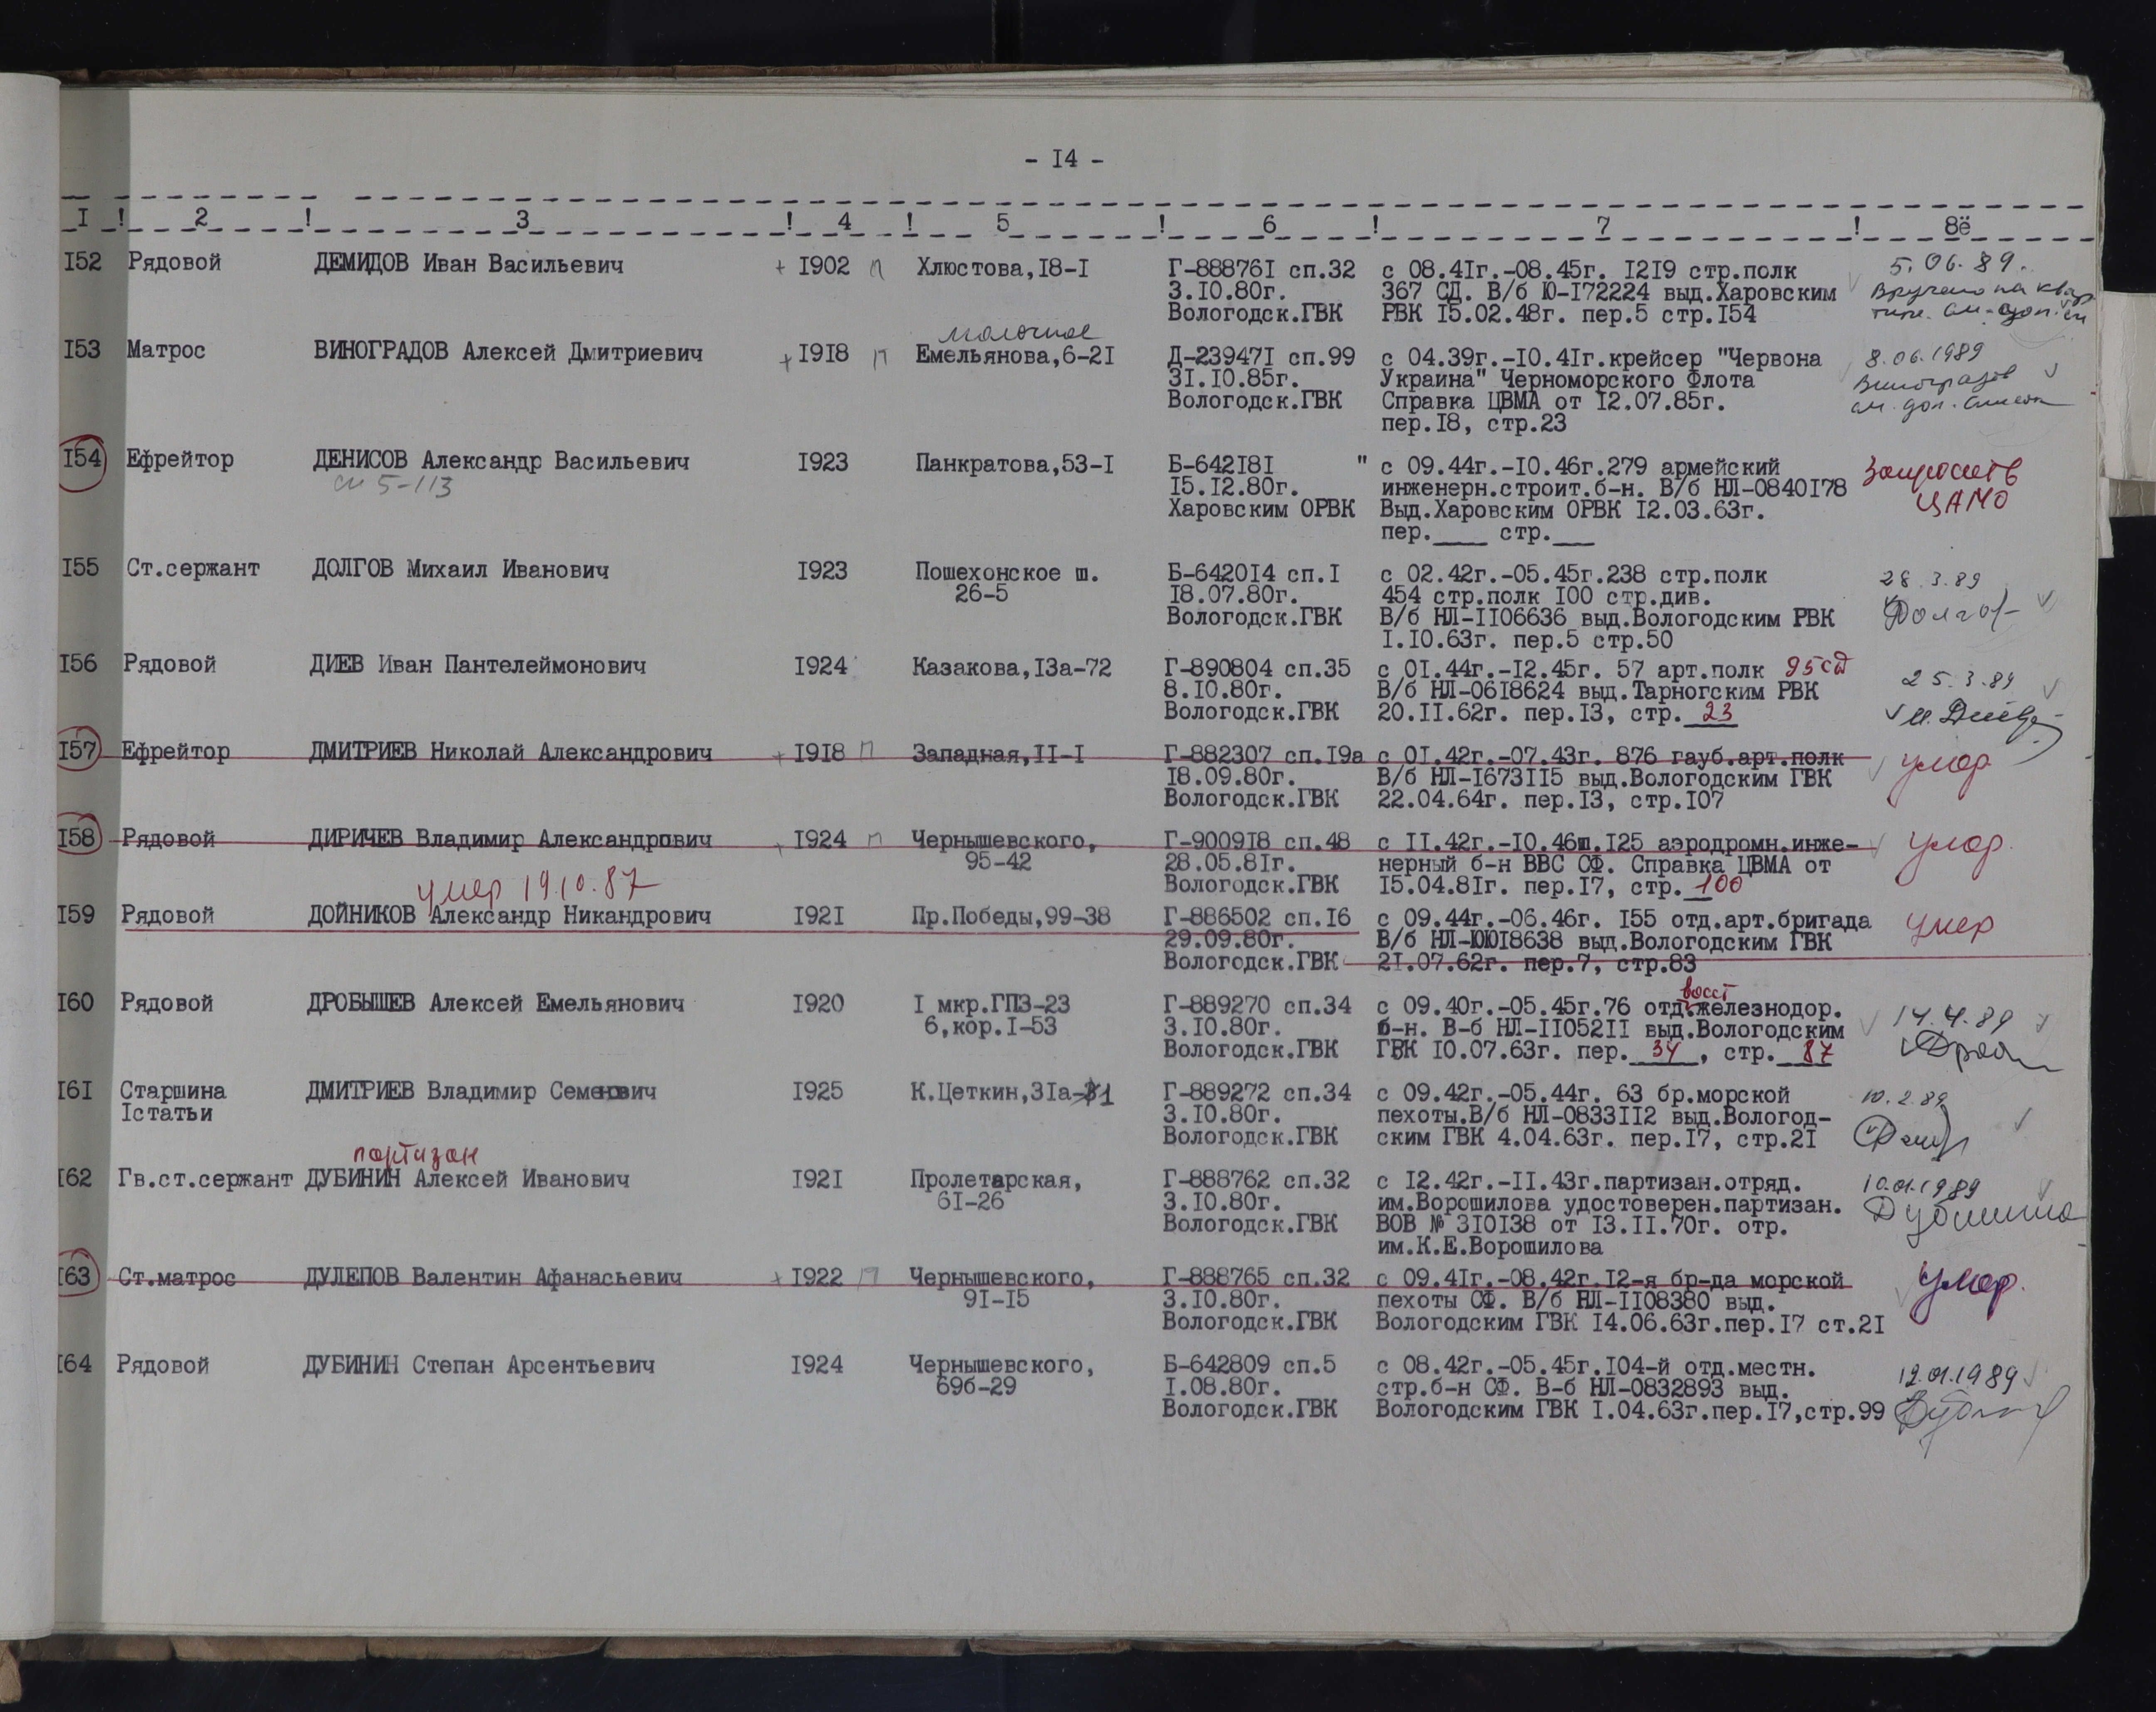 - I4 -
I ! 2 ! 3 ! 4 ! 5 ! 6 ! 7 ! 8ё
I52 Рядовой ДЕМИДОВ Иван Васильевич + I902 п Хлюстова,I8-I Г-88876I сп.32 с 08.4Iг.-08.45г. I2I9 стр.полк 5.06.89.
3.I0.80г. 367 СД. В/б Ю-I72224 выд.Харовским Вручено на квар
Вологодск.ГВК РВК I5.02.48г. пер.5 стр.I54 тире. см. доп.
молочное
I53 Матрос ВИНОГРАДОВ Алексей Дмитриевич + I9I8 п Емельянова,6-2I Д-23947I сп.99 с 04.39г.-I0.4Iг.крейсер "Червона 8.06.1989
3I.I0.85г. Украина" Черноморского Флота Виноградов
Вологодск.ГВК Справка ЦВМА от I2.07.85г. см. доп. список
пер.I8, стр.23
I54 Ефрейтор ДЕНИСОВ Александр Васильевич I923 Панкратова,53-I Б-642I8I " с 09.44г.-I0.46г.279 армейский Запросить
см 5-113 I5.I2.80г. инженерн.строит.б-н. В/б НЛ-0840I78 ЦАМО
Харовским ОРВК Выд.Харовским ОРВК I2.03.63г.
пер.____ стр.___
I55 Ст.сержант ДОЛГОВ Михаил Иванович I923 Пошехонское ш. Б-6420I4 сп.I с 02.42г.-05.45г.238 стр.полк 28.3.89
26-5 I8.07.80г. 454 стр.полк I00 стр.див. Долгов
Вологодск.ГВК В/б НЛ-II06636 выд.Вологодским РВК
I.I0.63г. пер.5 стр.50
I56 Рядовой ДИЕВ Иван Пантелеймонович I924 Казакова,I3а-72 Г-890804 сп.35 с 0I.44г.-I2.45г. 57 арт.полк 95сд
8.I0.80г. В/б НЛ-06I8624 выд.Тарногским РВК 25.3.89
Вологодск.ГВК 20.II.62г. пер.I3, стр. 23
I57 Ефрейтор ДМИТРИЕВ Николай Александрович + I9I8 п Западная,II-I Г-882307 сп.I9а с 0I.42г.-07.43г. 876 гауб.арт.полк умер
I8.09.80г. В/б НЛ-I673II5 выд.Вологодским ГВК
Вологодск.ГВК 22.04.64г. пер.I3, стр.I07
I58 Рядовой ДИРИЧЕВ Владимир Александрович + I924 п Чернышевского, Г-9009I8 сп.48 с II.42г.-I0.46ш.I25 аэродромн.инже- умер.
95-42 28.05.8Iг. нерный б-н ВВС СФ. Справка ЦВМА от
умер 19.10.87 Вологодск.ГВК I5.04.8Iг. пер.I7, стр. 100
I59 Рядовой ДОЙНИКОВ Александр Никандрович I92I Пр.Победы,99-38 Г-886502 сп.I6 с 09.44г.-06.46г. I55 отд.арт.бригада умер
29.09.80г. В/б НЛ-ЮЮI8638 выд.Вологодским ГВК
Вологодск.ГВК 2I.07.62г. пер.7, стр.83
восст
I60 Рядовой ДРОБЫШЕВ Алексей Емельянович I920 I мкр.ГПЗ-23 Г-889270 сп.34 с 09.40г.-05.45г.76 отд.железнодор. 14.4.89
6,кор.I-53 3.I0.80г. б-н. В-б НЛ-II052II выд.Вологодским
Вологодск.ГВК ГВК I0.07.63г. пер. 34 , стр. 87
I6I Старшина ДМИТРИЕВ Владимир Семенович I925 К.Цеткин,3Iа-31 Г-889272 сп.34 с 09.42г.-05.44г. 63 бр.морской 10.2.89
Iстатьи 3.I0.80г. пехоты.В/б НЛ-0833II2 выд.Вологод-
Вологодск.ГВК ским ГВК 4.04.63г. пер.I7, стр.2I
партизан
I62 Гв.ст.сержант ДУБИНИН Алексей Иванович I92I Пролетарская, Г-888762 сп.32 с I2.42г.-II.43г.партизан.отряд. 10.01.1989
6I-26 3.I0.80г. им.Ворошилова удостоверен.партизан. Дубинина
Вологодск.ГВК ВОВ № 3I0I38 от I3.II.70г. отр.
им.К.Е.Ворошилова
I63 Ст.матрос ДУЛЕПОВ Валентин Афанасьевич + I922 п Чернышевского, Г-888765 сп.32 с 09.4Iг.-08.42г.I2-я бр-да морской умер.
9I-I5 3.I0.80г. пехоты СФ. В/б НЛ-II08380 выд.
Вологодск.ГВК Вологодским ГВК I4.06.63г.пер.I7 ст.2I
I64 Рядовой ДУБИНИН Степан Арсентьевич I924 Чернышевского, Б-642809 сп.5 с 08.42г.-05.45г.I04-й отд.местн. 12.01.1989
69б-29 I.08.80г. стр.б-н СФ. В-б НЛ-0832893 выд.
Вологодск.ГВК Вологодским ГВК I.04.63г.пер.I7,стр.99